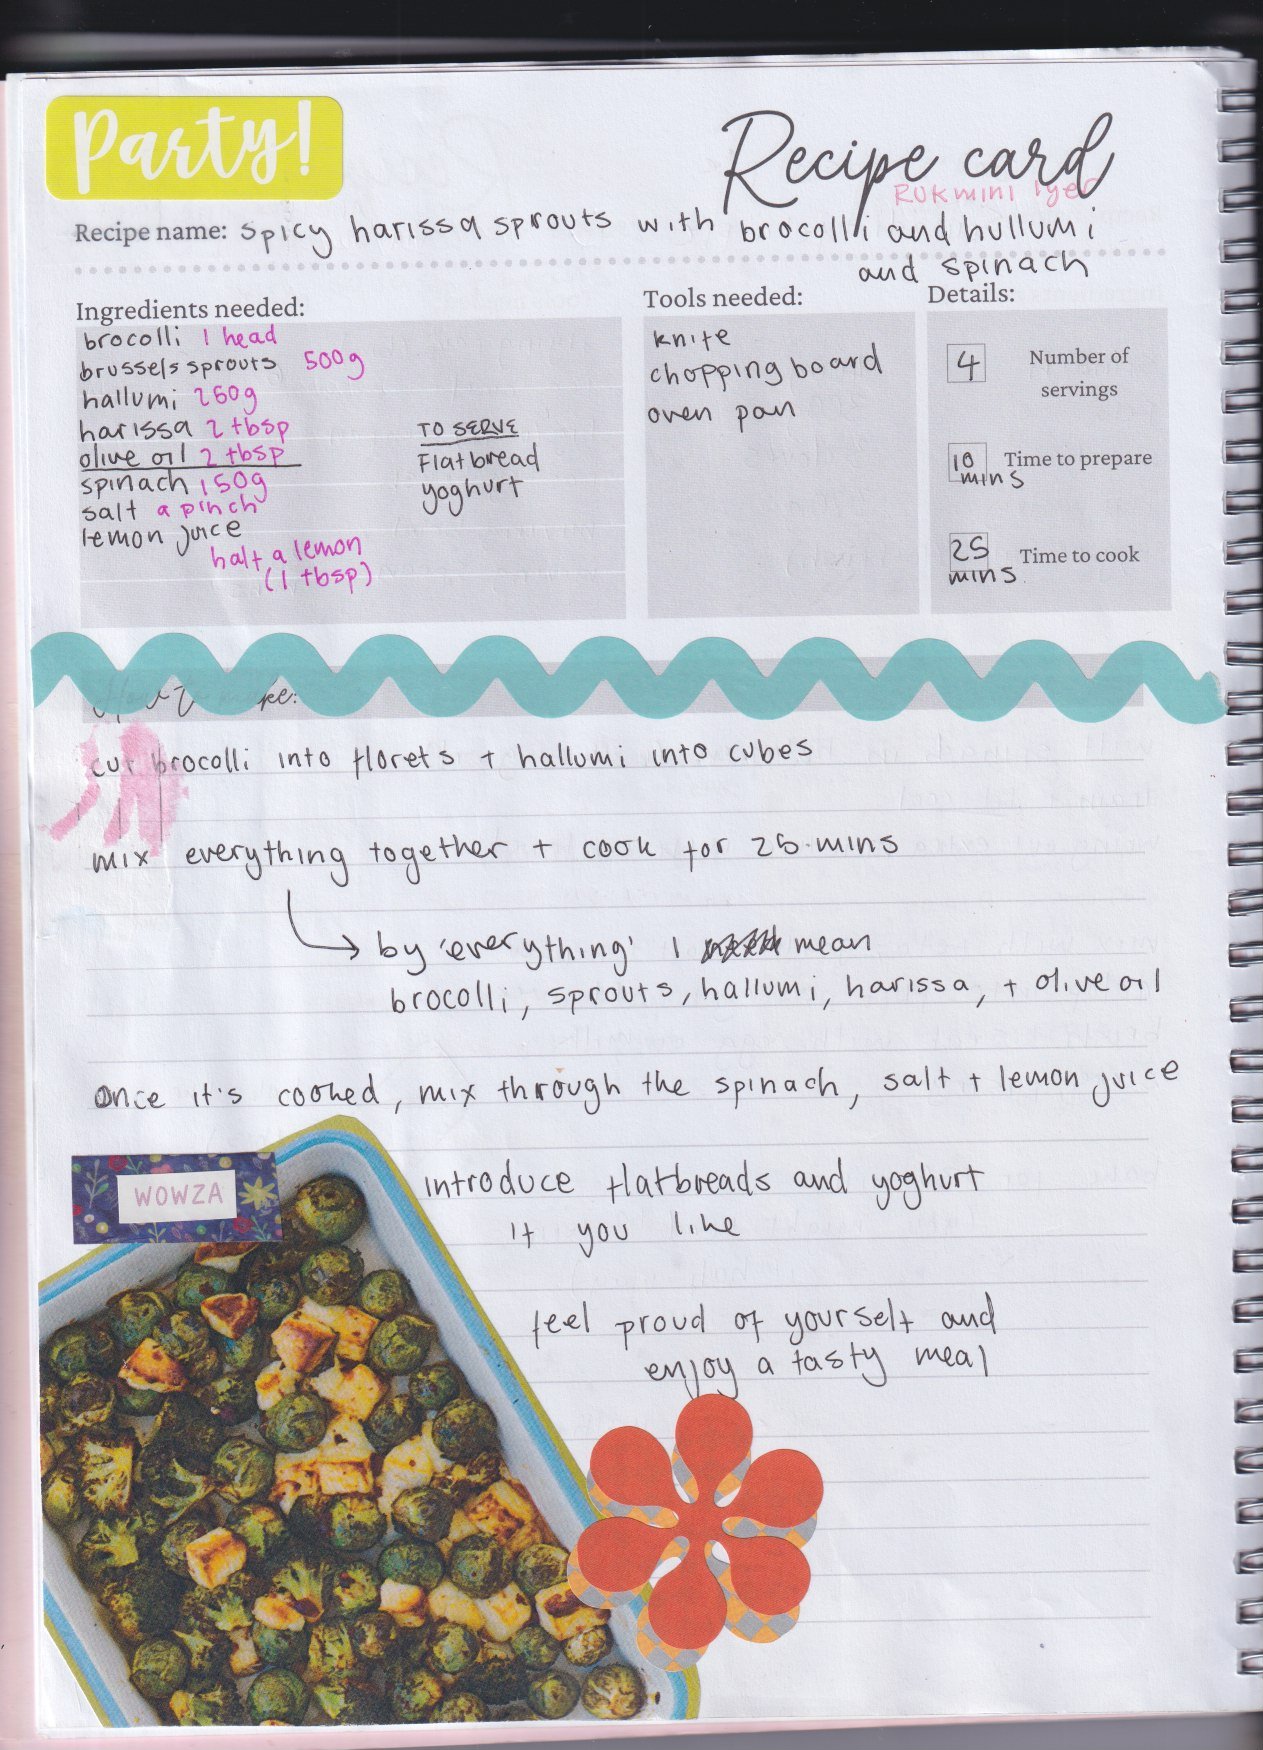 Party!
Recipe card
Rukmini Iyer
Recipe name: spicy harissa sprouts with brocolli and hullumi
and spinach
Ingredients needed:
brocolli 1 head
brussels sprouts 500g
hallumi 250g
harissa 2 tbsp
olive oil 2 tbsp
spinach 150g
salt a pinch
lemon juice
half a lemon
(1 tbsp)
TO SERVE
Flatbread
yoghurt
Tools needed:
knife
chopping board
oven pan
Details:
4 Number of
servings
10 Time to prepare
mins
25 Time to cook
mins
cut brocolli into florets + hallumi into cubes
mix everything together + cook for 25 mins
by 'everything' I mean
brocolli, sprouts, hallumi, harissa, + olive oil
Once it's cooked, mix through the spinach, salt + lemon juice
WOWZA
introduce flatbreads and yoghurt
if you like
feel proud of yourself and
enjoy a tasty meal